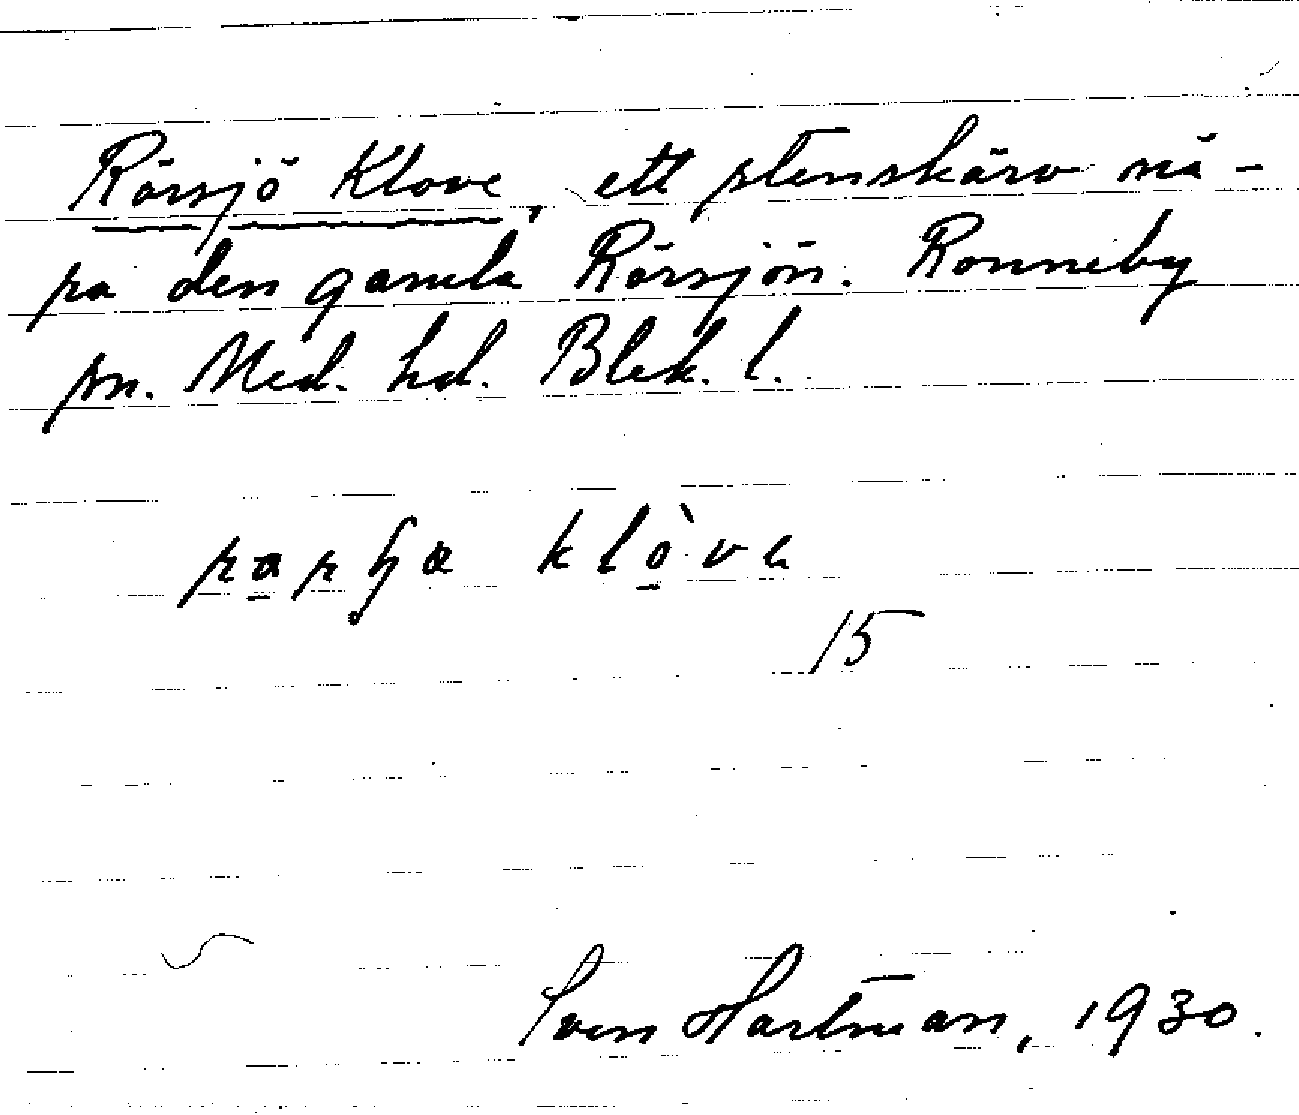 Rörsjö Klove, ett stenskärv nä-
pa den gamla Rörsjön. Ronneby
sn. Med. hd. Blek. l.
klòva
15
Sven Hartman, 1930.